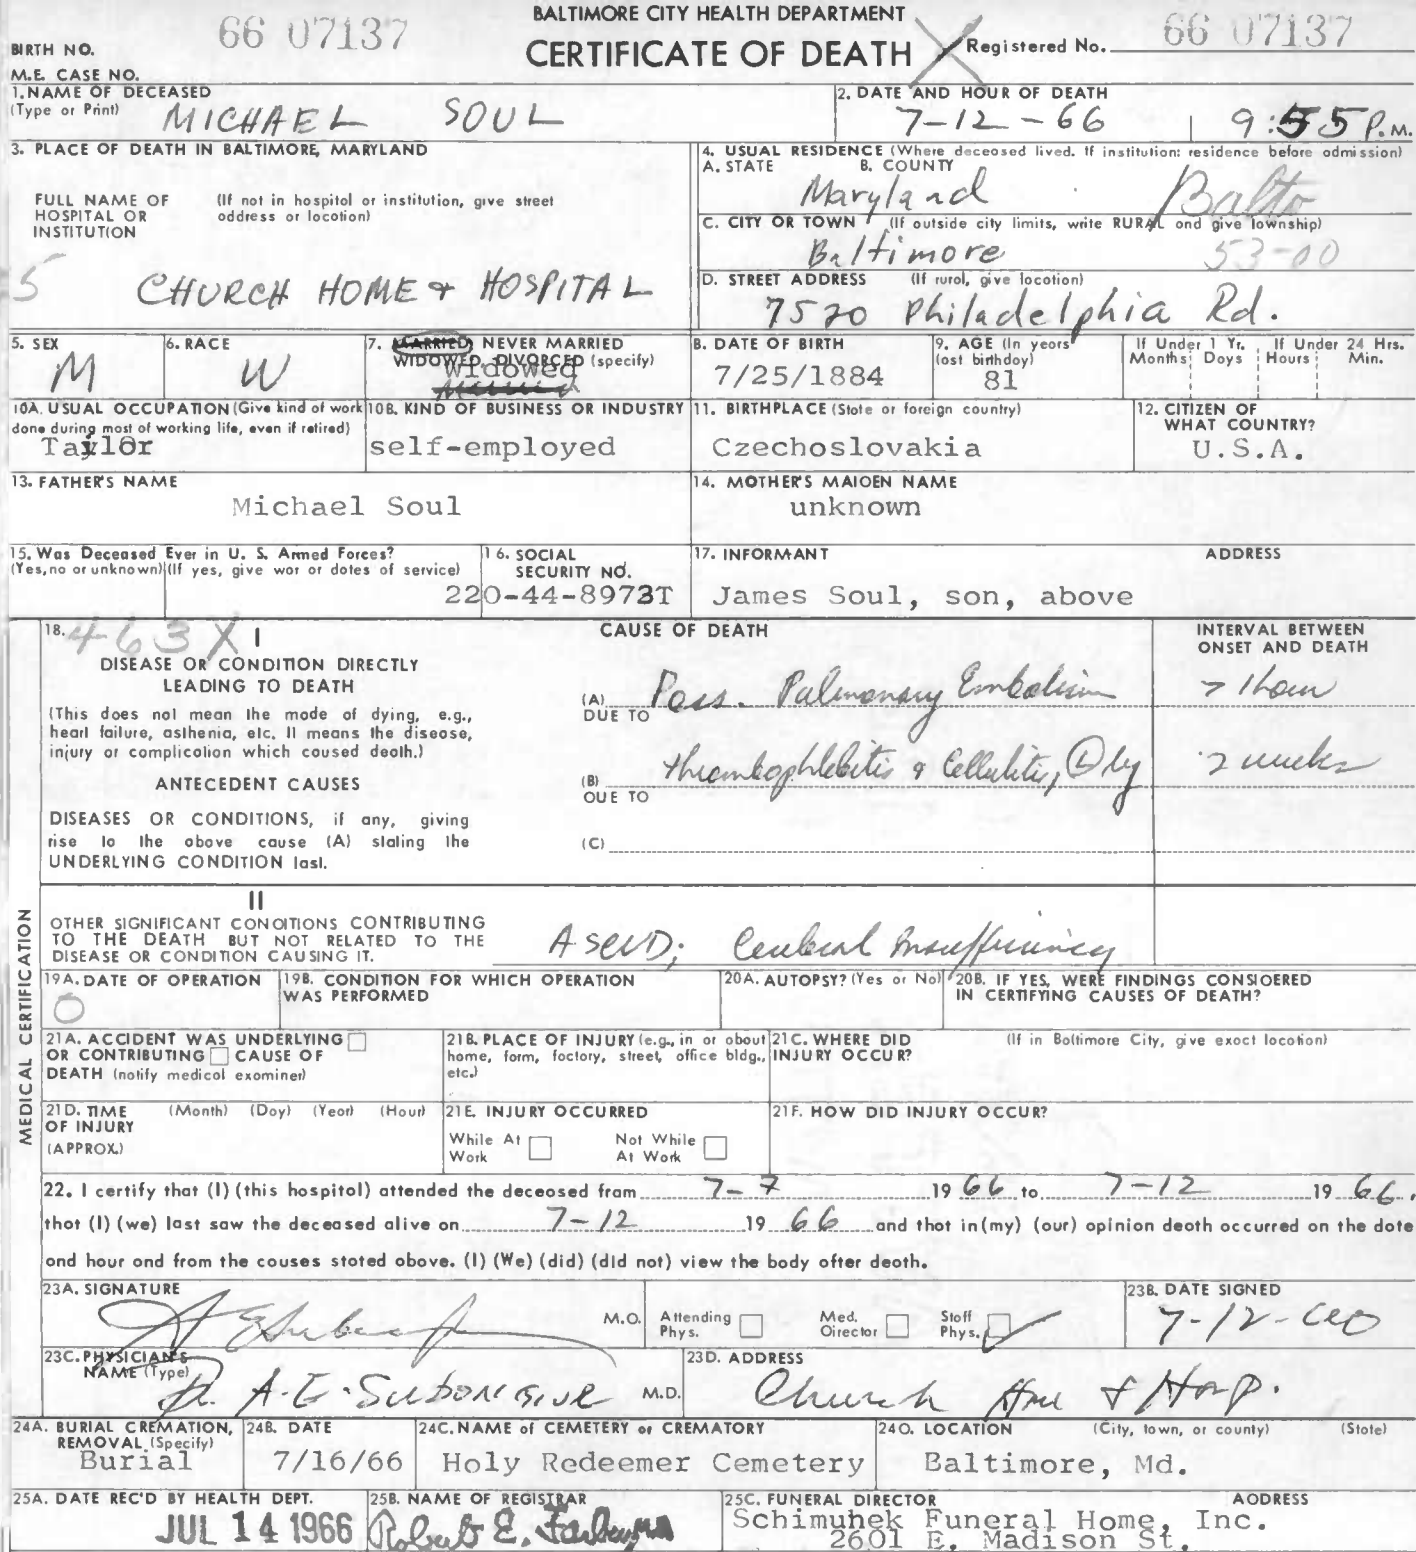 BALTIMORE CITY HEALTH DEPARTMENT
66 07137
CERTIFICATE OF DEATH
Registered No. 66 07137
BIRTH NO.
M.E. CASE NO.
1. NAME OF DECEASED
(Type or Print) MICHAEL SOUL
2. DATE AND HOUR OF DEATH
7-12-66 9:55 P.M.
3. PLACE OF DEATH IN BALTIMORE, MARYLAND
FULL NAME OF HOSPITAL OR INSTITUTION
(If not in hospital or institution, give street address or location)
5 CHURCH HOME & HOSPITAL
4. USUAL RESIDENCE (Where deceased lived. If institution: residence before admission)
A. STATE B. COUNTY
Maryland Balto
C. CITY OR TOWN (If outside city limits, write RURAL and give township)
Baltimore 53-00
D. STREET ADDRESS (If rural, give location)
7520 Philadelphia Rd.
5. SEX
M
6. RACE
W
7. MARRIED, NEVER MARRIED
WIDOWED, DIVORCED (specify)
Widowed
8. DATE OF BIRTH
7/25/1884
9. AGE (In years last birthday)
81
If Under 1 Yr. If Under 24 Hrs.
Months Days Hours Min.
10A. USUAL OCCUPATION (Give kind of work done during most of working life, even if retired)
Taylor
10B. KIND OF BUSINESS OR INDUSTRY
self-employed
11. BIRTHPLACE (State or foreign country)
Czechoslovakia
12. CITIZEN OF WHAT COUNTRY?
U.S.A.
13. FATHER'S NAME
Michael Soul
14. MOTHER'S MAIDEN NAME
unknown
15. Was Deceased Ever in U. S. Armed Forces?
(Yes, no or unknown) (If yes, give war or dates of service)
16. SOCIAL SECURITY NO.
220-44-8973T
17. INFORMANT ADDRESS
James Soul, son, above
MEDICAL CERTIFICATION
18. 463X I
CAUSE OF DEATH
INTERVAL BETWEEN ONSET AND DEATH
DISEASE OR CONDITION DIRECTLY LEADING TO DEATH
(This does not mean the mode of dying, e.g., heart failure, asthenia, etc. It means the disease, injury or complication which caused death.)
(A) Poss. Pulmonary Embolism 7 1 hour
DUE TO
ANTECEDENT CAUSES
(B) thrombophlebitis & Cellulitis, (L) leg 2 weeks
DUE TO
DISEASES OR CONDITIONS, if any, giving rise to the above cause (A) stating the UNDERLYING CONDITION last.
(C)
II
OTHER SIGNIFICANT CONDITIONS CONTRIBUTING TO THE DEATH BUT NOT RELATED TO THE DISEASE OR CONDITION CAUSING IT.
ASCVD; Cerebral Insufficiency
19A. DATE OF OPERATION
0
19B. CONDITION FOR WHICH OPERATION WAS PERFORMED
20A. AUTOPSY? (Yes or No)
20B. IF YES, WERE FINDINGS CONSIDERED IN CERTIFYING CAUSES OF DEATH?
21A. ACCIDENT WAS UNDERLYING OR CONTRIBUTING CAUSE OF DEATH (notify medical examiner)
21B. PLACE OF INJURY (e.g., in or about home, farm, factory, street, office bldg., etc.)
21C. WHERE DID INJURY OCCUR?
(If in Baltimore City, give exact location)
21D. TIME OF INJURY (APPROX.)
(Month) (Day) (Year) (Hour)
21E. INJURY OCCURRED
While At Work Not While At Work
21F. HOW DID INJURY OCCUR?
22. I certify that (I) (this hospital) attended the deceased from 7-7 1966 to 7-12 1966,
that (I) (we) last saw the deceased alive on 7-12 1966 and that in (my) (our) opinion death occurred on the date
and hour and from the causes stated above. (I) (We) (did) (did not) view the body after death.
23A. SIGNATURE
M.D.
Attending Phys. Med. Director Staff Phys.
23B. DATE SIGNED
7-12-66
23C. PHYSICIAN'S NAME (Type)
Dr. A. E. M.D.
23D. ADDRESS
Church Home & Hosp.
24A. BURIAL CREMATION, REMOVAL (Specify)
Burial
24B. DATE
7/16/66
24C. NAME of CEMETERY or CREMATORY
Holy Redeemer Cemetery
24D. LOCATION (City, town, or county) (State)
Baltimore, Md.
25A. DATE REC'D BY HEALTH DEPT.
JUL 14 1966
25B. NAME OF REGISTRAR
Robert E. Farber
25C. FUNERAL DIRECTOR ADDRESS
Schimunek Funeral Home, Inc.
2601 E. Madison St.